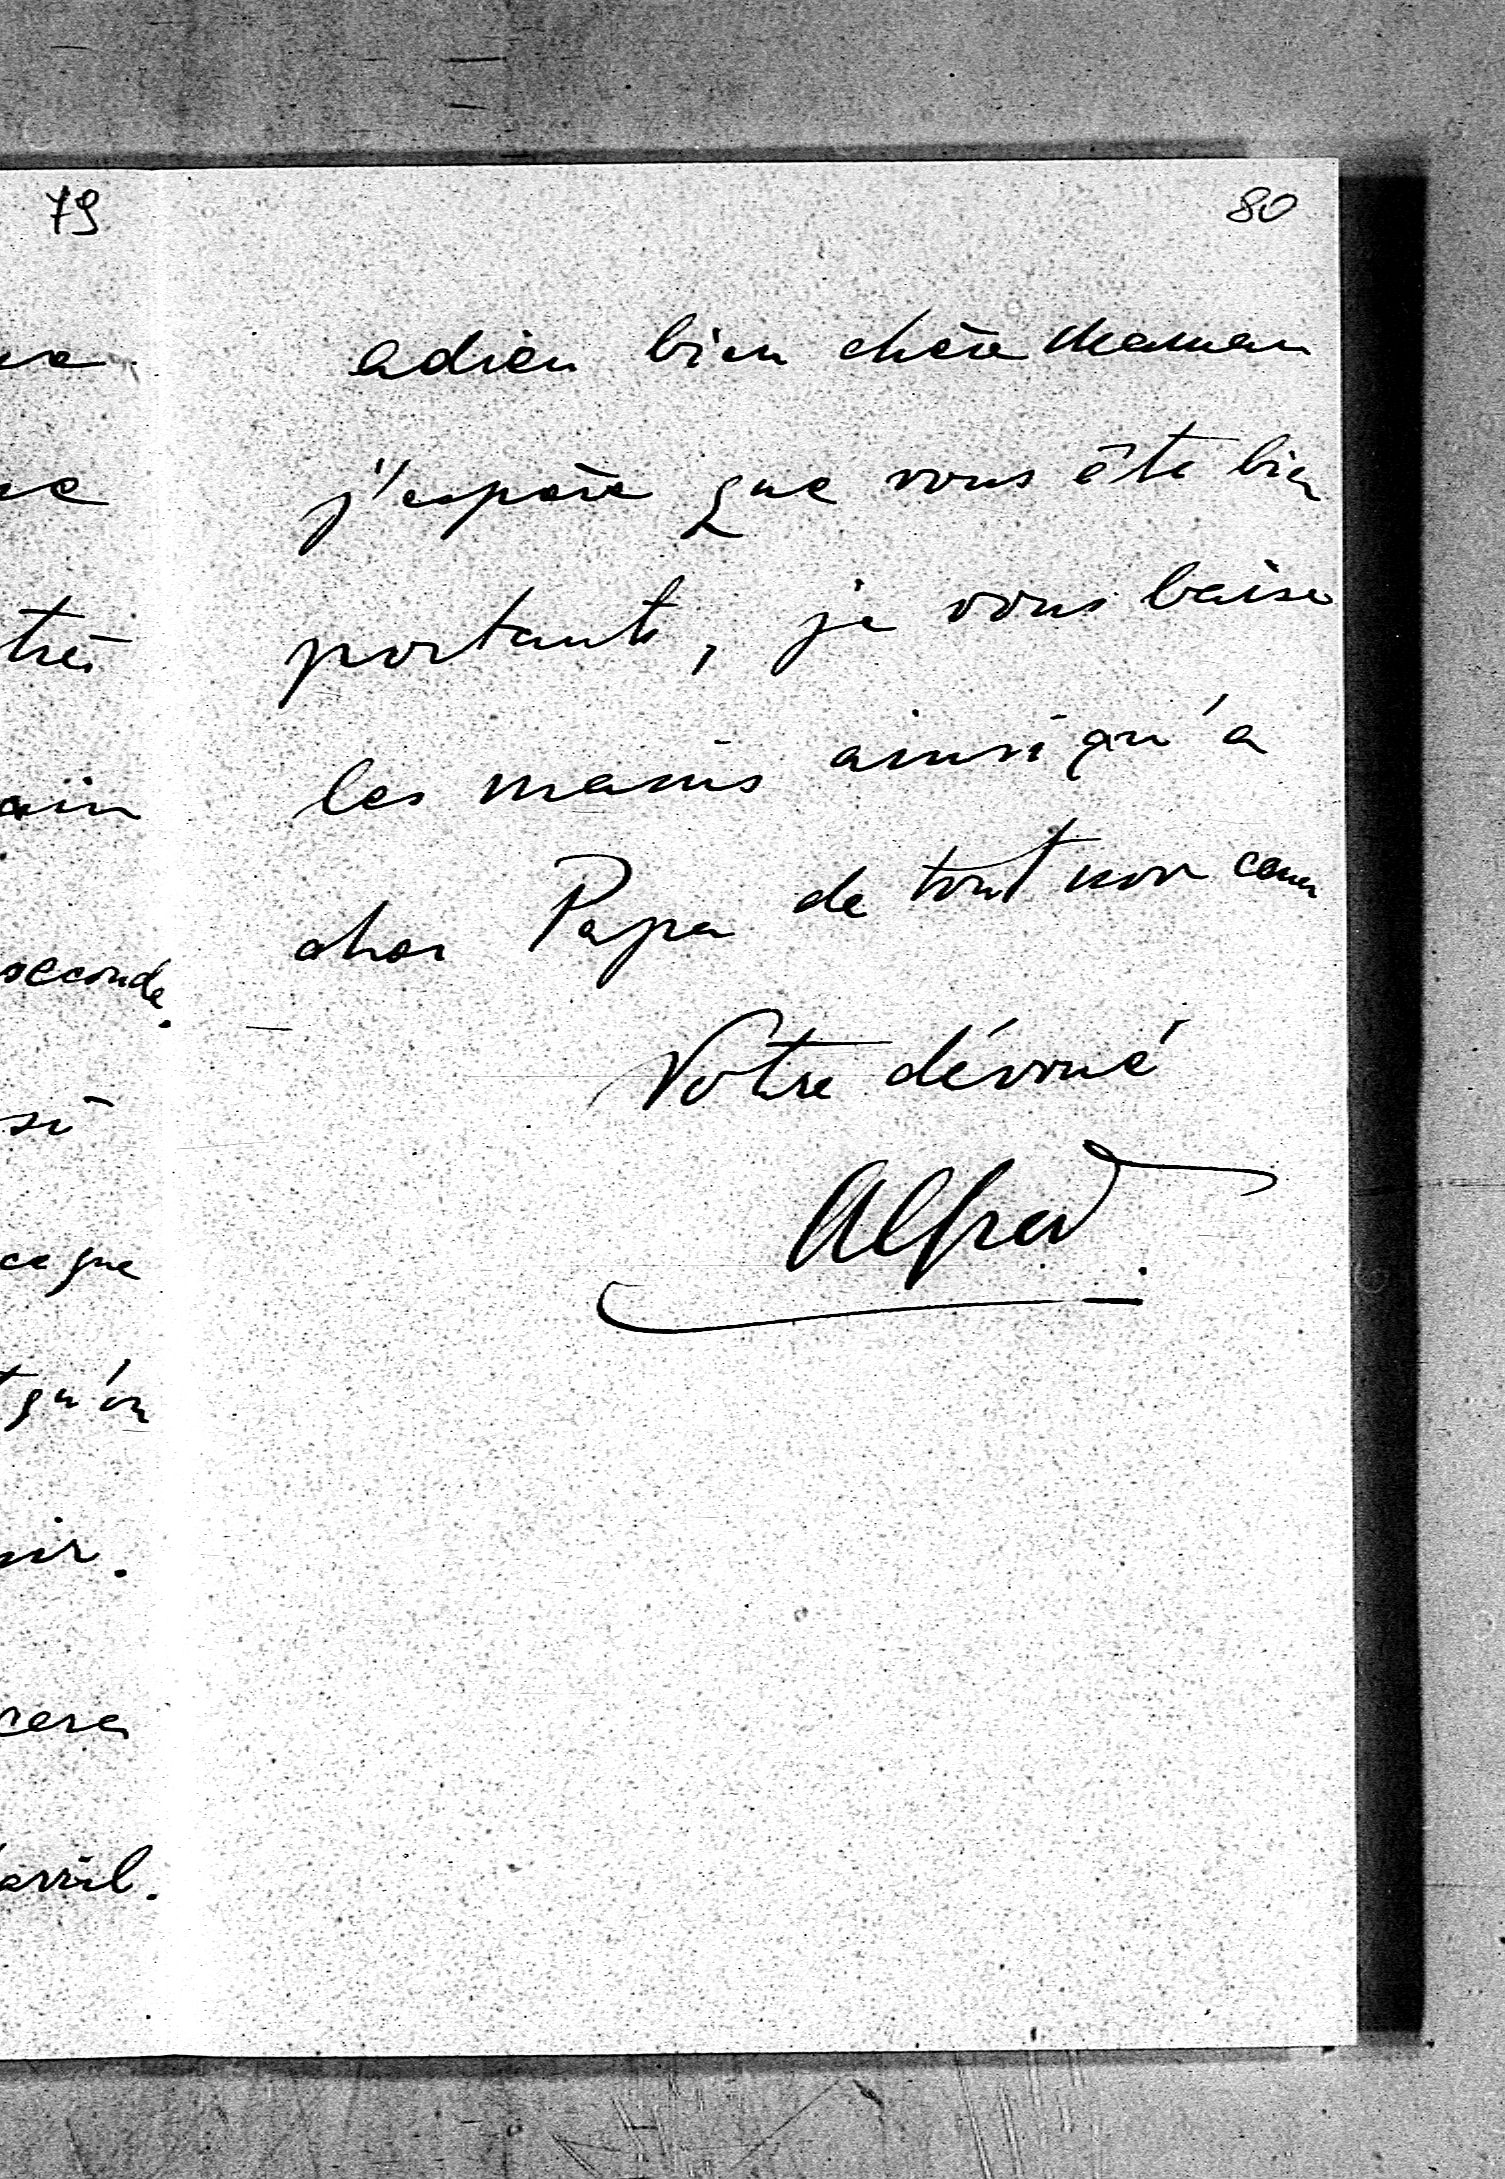 79
seconde.
si
ce que
qu'on
avril.
80
adieu bien chère Maman
j'espère que vous ête bien
portants, je vous baise
les mains ainsi qu'a
cher Papa de tout mon cœur
Votre dévoué
Alfred.